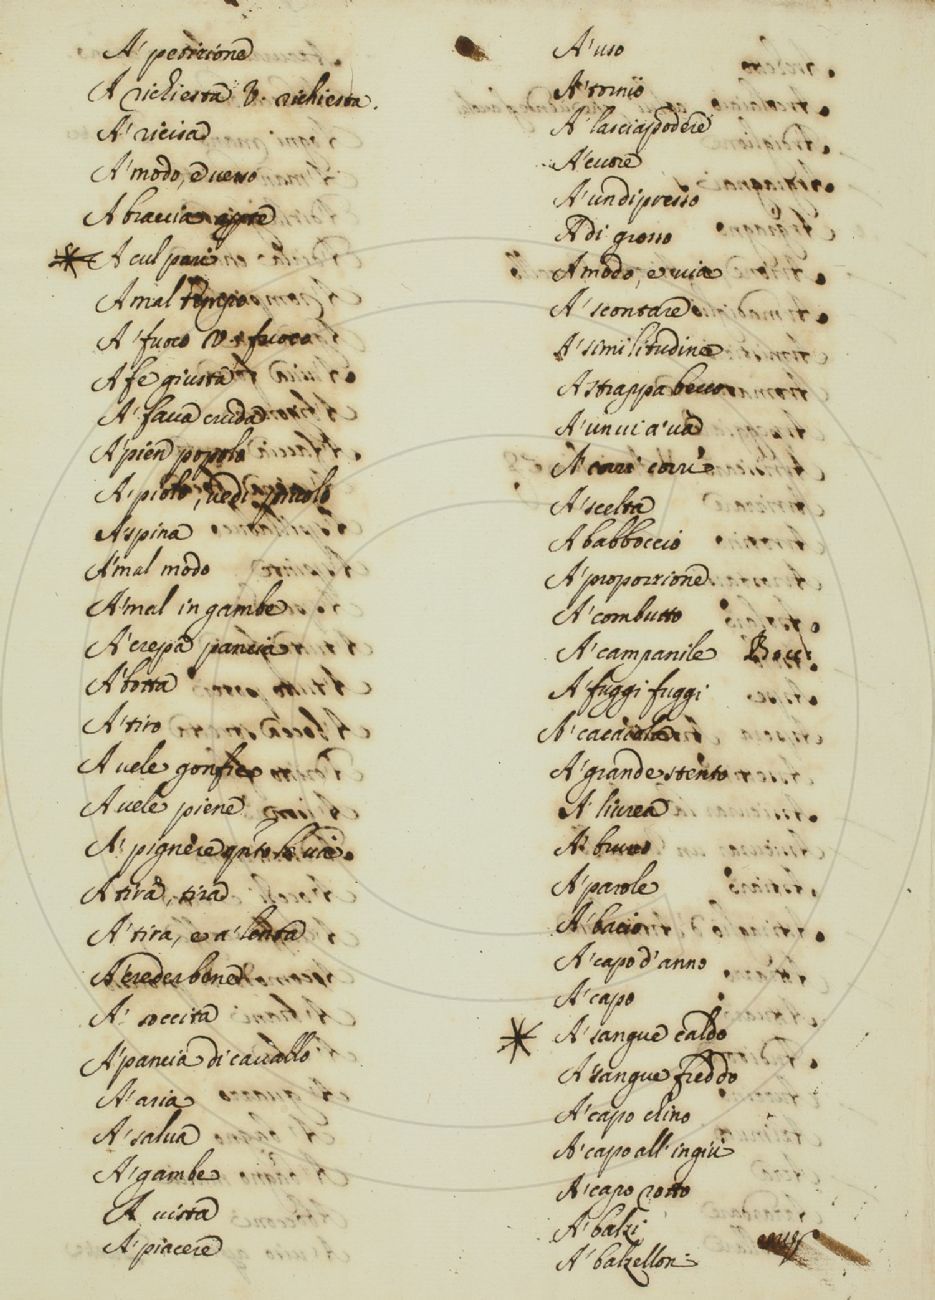 A' petizione
A richiesta V. richiesta.
A' ricisa
A' modo, e verso
A braccia apte
A cul pari
A mal tempo
A' fuoco V. fuoco
A fe giusta
A' fava cruda
A' pien popolo
A' piolo, vedi piuolo
A' spina
A' mal modo
A' mal in gambe
A' crepa pancia
A' botta
A' tiro
A vele gonfie
A vele piene
A' pignere
A tira, tira
A' tira, e a' lenta
A' creder bene
A' soccita
A' pancia di cavallo
A' aria
A' salva
A' gambe
A vista
A' piacere
A' uso
A' tornio
A' lasciapodere
A' cuore
A' undipresso
A di grosso
A modo, e via
A' scontare
A' similitudine
A strappa becco
A' un vi a' va
A' corri corri
A' scelta
A babboccio
A' proporzione
A' combutto
A' campanile Bocc:
A' fuggi fuggi
A' cacaiola
A' grande stento
A' livrea
A' bruno
A' parole
A' bacio
A' capo d'anno
A' capo
A' sangue caldo
A sangue freddo
A' capo chino
A' capo all' ingiù
A' capo rotto
A' balzi
A' balzelloni